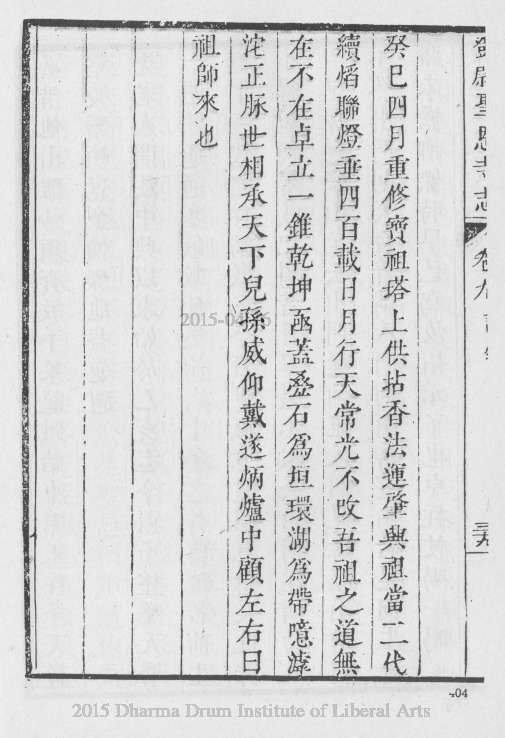 鄧尉聖恩寺志 卷九 三六
癸巳四月重修寶祖塔上供拈香法運肇興祖當二代
續焰聯燈垂四百載日月行天常光不改吾祖之道無
在不在卓立一錐乾坤函蓋叠石為垣環湖為帶噫溥
沱正脉世相承天下兒孫威仰戴遂炳爐中顧左右曰
祖師來也
2015-04-16
-04
2015 Dharma Drum Institute of Liberal Arts